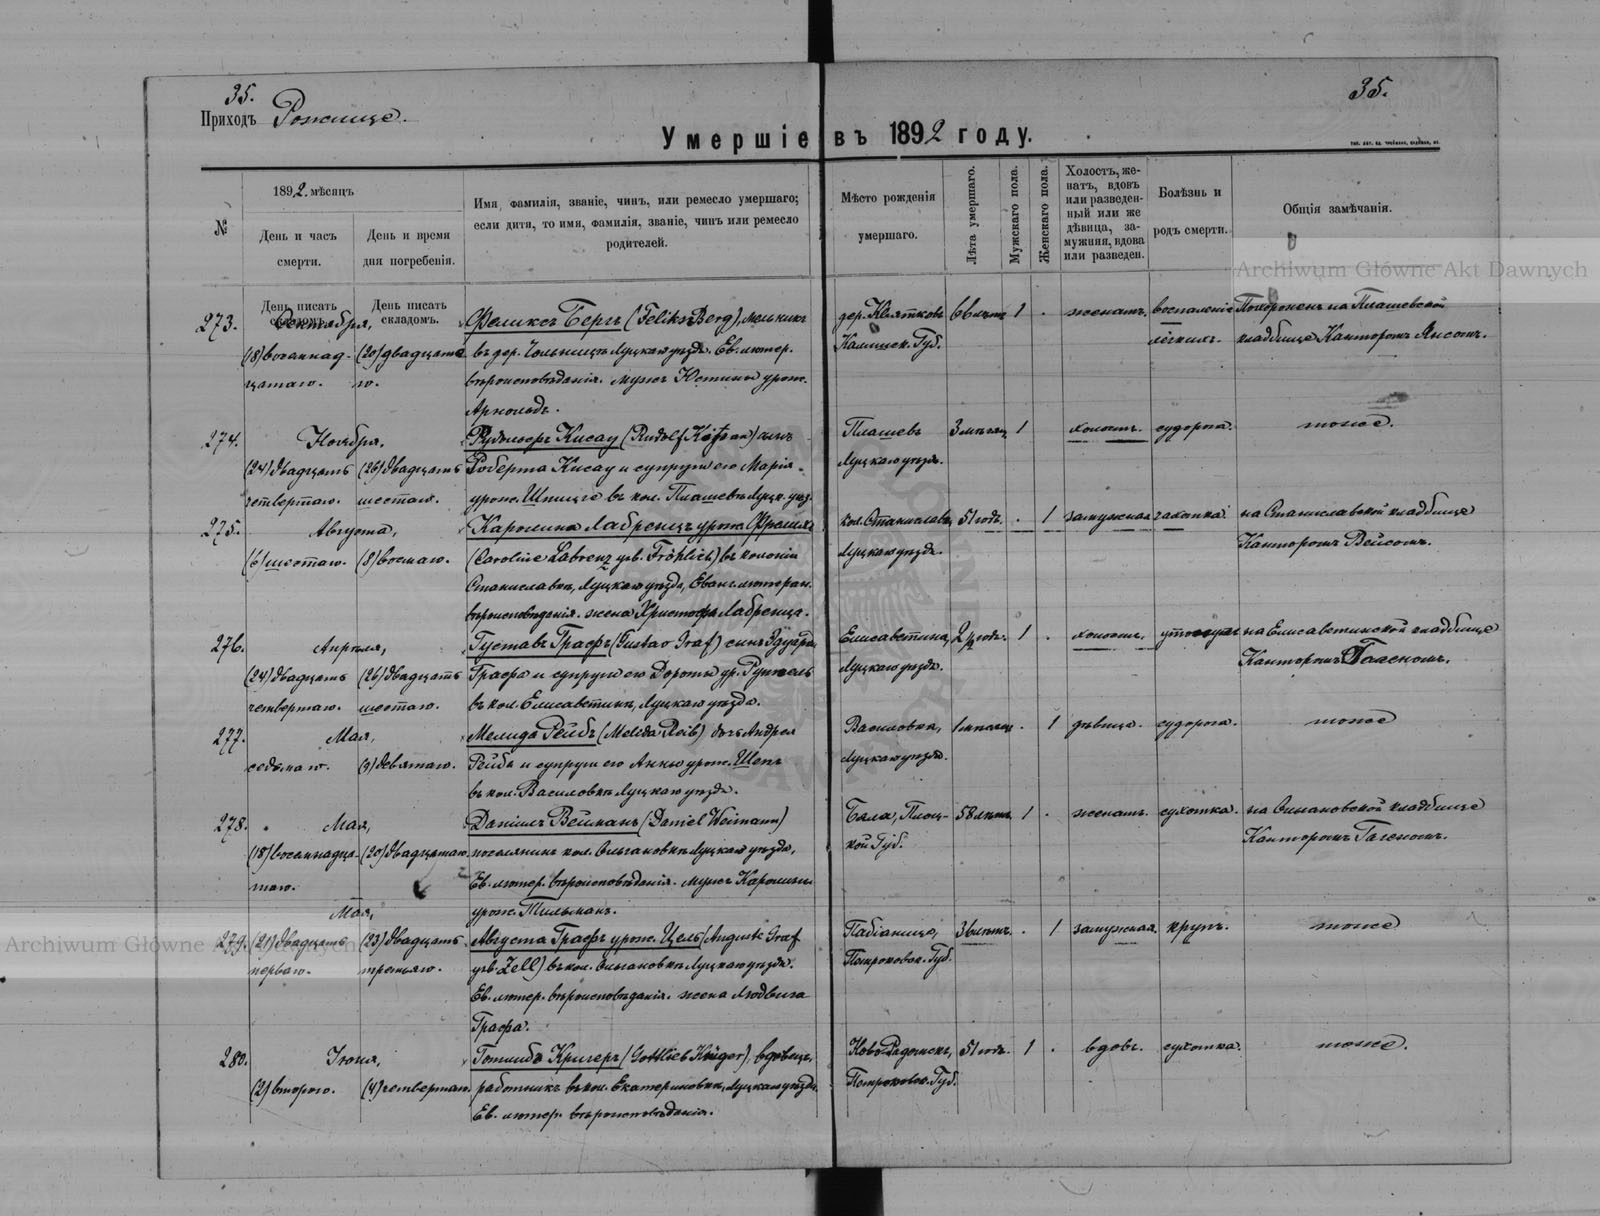 35.
35.
Приходъ Рожище.
Умершіе въ 1892 году.
№
1892. мѣсяцъ
День и часъ смерти.
День и время дня погребенія.
Имя, фамилія, званіе, чинъ, или ремесло умершаго;
если дитя, то имя, фамилія, званіе, чинъ или ремесло
родителей.
Мѣсто рожденія
умершаго.
Лѣта умершаго.
Мужскаго пола.
Женскаго пола.
Холостъ, же-
натъ, вдовъ
или разведен-
ный или же
дѣвица, за-
мужняя, вдова
или разведен.
Болѣзнь и
родъ смерти.
Общія замѣчанія.
День писать
складомъ.
День писать
складомъ.
273.
(18) восемнад-
цатаго.
(20) двадцата-
го.
Феликсъ Бергъ (Feliks Berg), мельникъ
въ дер. Луцкаго уѣзда. Ев. лютер.
вѣроисповѣданія. мужъ Юстины урож.
Арнольдъ.
дер.
Калишск. Губ.
1
.
женатъ.
воспаленіе
лёгкихъ.
Похороненъ на Плашевской
кладбище Канторомъ
274.
Ноября,
(24) двадцать
четвертаго.
(26) двадцать
шестаго.
Рудольфъ Кисау (Rudolf) сынъ
Роберта Кисау и супруги его Марія
урож. въ кол. Плашевъ Луцк. уѣз.
Плашевъ
Луцкаго уѣзда.
3 мѣсяц.
1
холостъ.
судорга.
тоже.
275.
Августа,
(6) шестаго.
(8) восьмаго.
Каролина Лабренцъ урож. Фрелихъ
(Caroline Labrenz geb. Fröhlich) въ колоніи
Станиславка, Луцкаго уѣзда, Еванг. лютеран.
вѣроисповѣданія. жена Христофа Лабренца.
кол. Станиславка,
Луцкаго уѣзда.
51 годъ.
.
1
замужняя
чахотка.
на Станиславской кладбище
Канторомъ Вейсомъ.
276.
Апрѣля,
(24) двадцать
четвертаго.
(26) двадцать
шестаго.
Густавъ Графъ (Gustav Graf) сынъ Эдуарда
Графа и супруги его Дороты ур.
въ кол. Елисаветинъ, Луцкаго уѣзда.
Елисаветинъ,
Луцкаго уѣзда.
1
.
холостъ.
на Елисаветинской кладбище
Канторомъ
277.
Мая,
седьмаго.
(9) девятаго.
Мелида Рейбъ (Melida Reib) дочь Андрея
Рейба и супруги его Анны урож.
въ кол. Василовкѣ Луцкаго уѣзда.
Василовка,
Луцкаго уѣзда.
.
1
дѣвица.
судорога.
тоже
278.
Мая,
(18) восемнадца-
таго.
(20) двадцатаго.
Даніилъ Вейманъ (Daniel Weimann)
поселянинъ кол. Ольгановкѣ Луцкаго уѣзда,
Ев. лютер. вѣроисповѣданія. мужъ Каролины
урож. Тильманъ.
Плоц-
кой Губ.
58 лѣтъ.
1
.
женатъ.
сухотка.
на Ольгановской кладбище
Канторомъ
279.
Мая,
(21) двадцать
перваго.
(23) двадцать
третьяго.
Августа Графъ урож. Цель (Auguste Graf
geb. Zell) въ кол. Ольгановкѣ Луцкаго уѣзда.
Ев. лютер. вѣроисповѣданія. жена Людвига
Графа.
Пабіаница,
Петроковск. Губ.
36 лѣтъ.
.
1
замужняя.
крупъ.
тоже
280.
Іюня,
(2) второго.
(4) четвертаго.
Готлибъ Кригеръ (Gottlieb Krüger), вдовецъ,
работникъ въ кол. Екатериновка, Луцкаго уѣзда.
Ев. лютер. вѣроисповѣданія.
Ново Радомскъ,
Петроковск. Губ.
51 годъ.
1
.
вдовъ.
сухотка.
тоже.
Archiwum Główne Akt Dawnych
Archiwum Główne Akt Dawnych